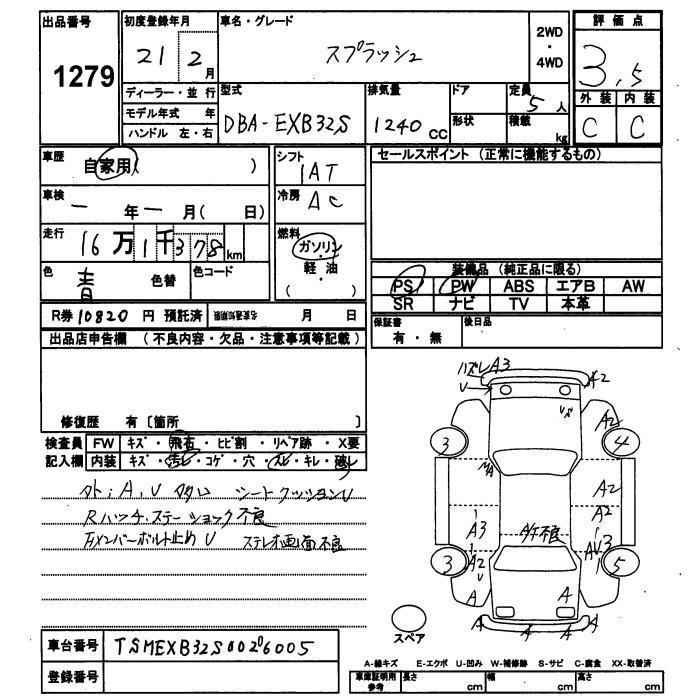 出品番号
1279
初度登録年月
21 2月
車名・グレード
スプラッシュ
2WD
・
4WD
評価点
3.5
外装 内装
C C
ディーラー・並 行
モデル年式 年
ハンドル 左・右
型式
DBA-EXB32S
排気量
1240 CC
ドア
形状
定員
5人
積載
kg
車歴
自家用( )
シフト
IAT
冷房
AC
車検
一 年 一 月( 日)
走行
16万1千378km
燃料
ガソリン
軽・油
( )
色
青
色替
色コード
R券 10820 円 預託済
月 日
セールスポイント (正常に機能するもの)
装備品 (純正品に限る)
PS PW ABS エアB AW
SR ナビ TV 本革
保証書
有・無
後日品
出品店申告欄 (不良内容・欠品・注意事項等記載)
修復歴 有〔箇所 〕
検査員
記入欄
FW キズ・飛石・ヒビ割・リペア跡・X要
内装 キズ・汚レ・コゲ・穴・スレ・キレ・破レ
ソト;A,U シートクッションU
Rハッチ.ステーショック不良
ナンバーボルト止めU ステレオ画面不良
車台番号
TSMEXB32S00206005
登録番号
ハズレA3
U
A2
A2
3
4
A2
A3
A2
AU3
A2
U
3
5
A
A
A
A
A
A
スペア
A-線キズ E-エクボ U-凹み W-補修跡 S-サビ C-腐食 XX-取替済
車庫証明用
参考
長さ cm
幅 cm
高さ cm